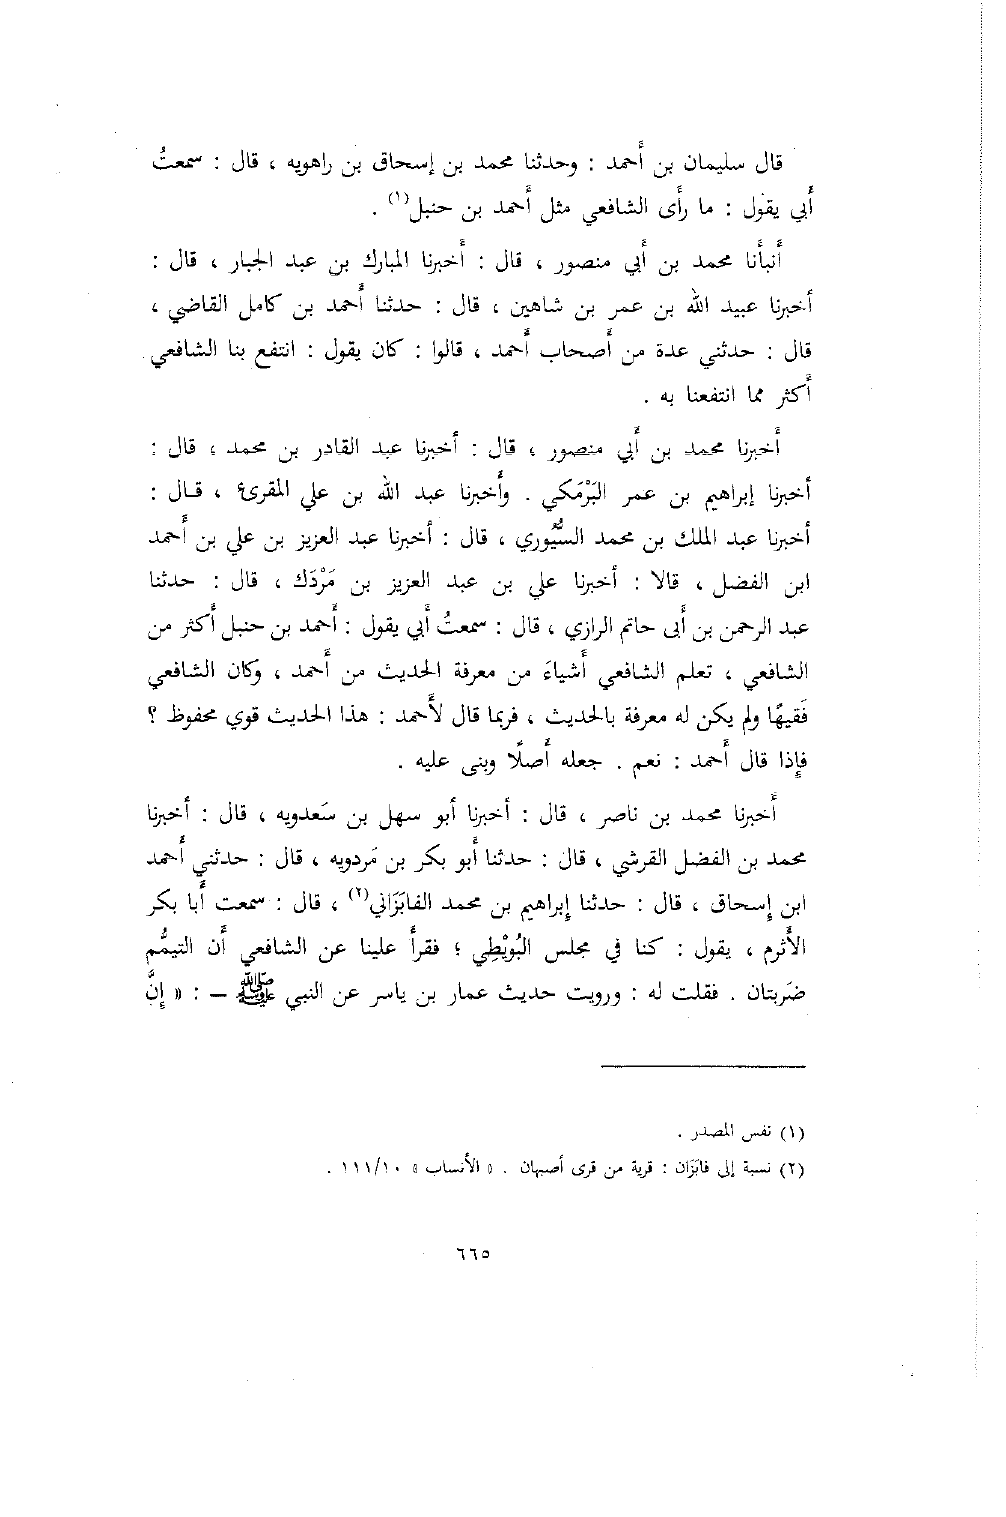 قال سليمان بن أحمد : وحدثنا محمد بن إسحاق بن راهويه ، قال : سمعتُ
أبي يقول : ما رأى الشافعي مثل أحمد بن حنبل(١) .
أنبأنا محمد بن أبي منصور ، قال : أخبرنا المبارك بن عبد الجبار ، قال :
أخبرنا عبيد الله بن عمر بن شاهين ، قال : حدثنا أحمد بن كامل القاضي ،
قال : حدثني عدة من أصحاب أحمد ، قالوا : كان يقول : انتفع بنا الشافعي
أكثر مما انتفعنا به .
أخبرنا محمد بن أبي منصور ، قال : أخبرنا عبد القادر بن محمد ، قال :
أخبرنا إبراهيم بن عمر البَرْمَكي . وأخبرنا عبد الله بن علي المقرئ ، قال :
أخبرنا عبد الملك بن محمد السُّيُوري ، قال : أخبرنا عبد العزيز بن علي بن أحمد
ابن الفضل ، قالا : أخبرنا علي بن عبد العزيز بن مَرْدَك ، قال : حدثنا
عبد الرحمن بن أبى حاتم الرازي ، قال : سمعتُ أبي يقول : أحمد بن حنبل أكثر من
الشافعي ، تعلم الشافعي أشياءَ من معرفة الحديث من أحمد ، وكان الشافعي
فَقيهًا ولم يكن له معرفة بالحديث ، فربما قال لأحمد : هذا الحديث قوي محفوظ ؟
فإذا قال أحمد : نعم . جعله أصلًا وبنى عليه .
أخبرنا محمد بن ناصر ، قال : أخبرنا أبو سهل بن سَعدويه ، قال : أخبرنا
محمد بن الفضل القرشي ، قال : حدثنا أبو بكر بن مَردويه ، قال : حدثني أحمد
ابن إسحاق ، قال : حدثنا إبراهيم بن محمد الفابَزَاني(٢) ، قال : سمعت أبا بكر
الأثرم ، يقول : كنا في مجلس البُوَيْطِي ؛ فقرأ علينا عن الشافعي أن التيمُّم
ضَربتان . فقلت له : ورويت حديث عمار بن ياسر عن النبي ﷺ – : « إنَّ
(١) نفس المصدر .
(٢) نسبة إلى فابَزَان : قرية من قرى أصبهان . « الأنساب » ١١١/١٠ .
٦٦٥